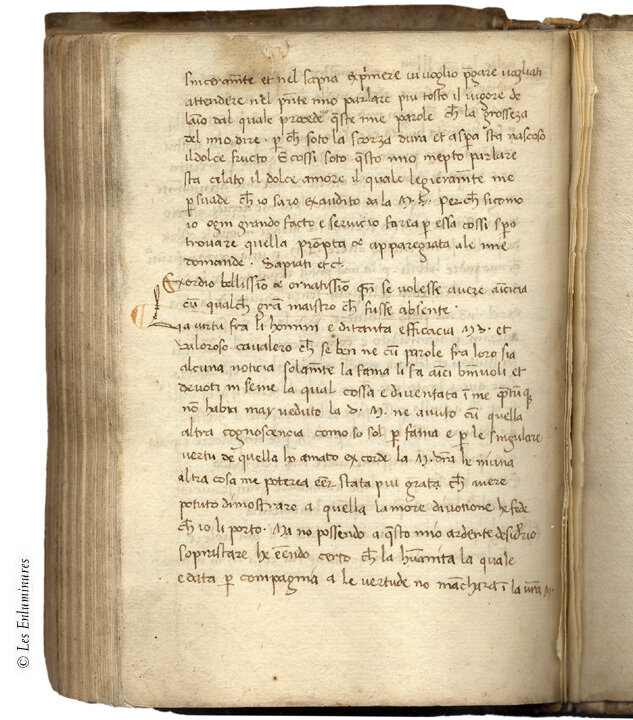 sincerame̅te et nel sapia exp̅mere vi voglio p̅gare vogliati
attendere nel p̅nte mio parlare piu tosto il vigore de
dal quale procede q̅ste mie parole ch̅ la grosseza
del mio dire · p̱ ch̅ soto la scorza dura et aspa̱ sta nascoso
il dolce fructo E cossi soto q̅sto mio inepto parlare
sta celato il dolce amore il quale legierame̅te me
p̱suade ch̅ io saro exaudito da la M. V̅. Perch̅ sicomo
io ogni grando facto e servicio farea p̱ essa cossi spo̱
trouare quella pro̅pta & apparegiata ale mie
domande · Sapiati et c̅.
Exordio bellissi̅o & ornatissi̅o qn̅ se volesse auere amicicia
cu̅ qualch̅ gra̅ maistro ch̅ fusse absente ·
La virtu fra li homini e di tanta efficacia M. et
valoroso cavalero ch̅ se ben ne cu̅ parole fra loro sia
alcuna noticia solame̅te la fama li fa amici be̅nuoli et
devoti in seme la qual cossa e diventata i̅ me
no̅ habia may veduto la v. M. ne avuto cu̅ quella
altra cognoscencia como so sol p̱ fama e p̱ le singulare
vertu de quella ho amato ex corde la M. v̅ra ne niuna
altra cosa me poterea ee̅r stata piu grata ch̅ avere
potuto dimostrare a quella la more divotione he fede
ch̅ io li porto · Ma no possendo a q̅sto mio ardente desiderio
soprastare he ee̅ndo certo ch̅ la hu̅anita la quale
e data p̱ compagnia a le vertude no ma̅chara i̅ la v̅ra M.
© Les Enluminures